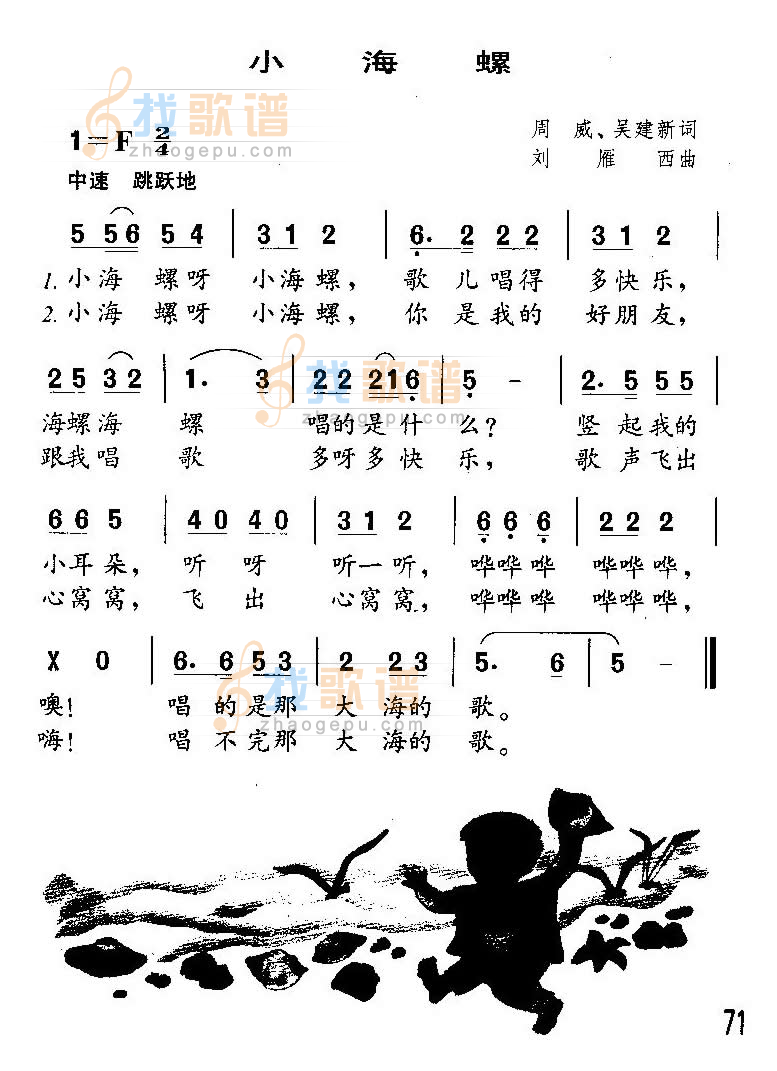 小 海 螺
找歌谱
zhaogepu.com
1=F 2/4
周 威、吴建新词
刘 雁 西曲
中速 跳跃地
5 56 54 | 31 2 | 6. 2 22 | 31 2 |
1. 小海 螺呀 小海螺， 歌 儿唱得 多快乐，
2. 小海 螺呀 小海螺， 你 是我的 好朋友，
25 32 | 1. 3 | 22 216 | 5 - | 2. 5 55 |
找歌谱
zhaogepu.com
海螺海 螺 唱的是什 么？ 竖 起我的
跟我唱 歌 多呀多快 乐， 歌 声飞出
66 5 | 40 40 | 31 2 | 66 6 | 22 2 |
小耳朵， 听 呀 听一听， 哗哗哗 哗哗哗，
心窝窝， 飞 出 心窝窝， 哗哗哗 哗哗哗，
X 0 | 6. 6 53 | 2 23 | 5. 6 | 5 - ‖
找歌谱
zhaogepu.com
噢！ 唱 的是那 大 海的 歌。
嗨！ 唱 不完那 大 海的 歌。
71